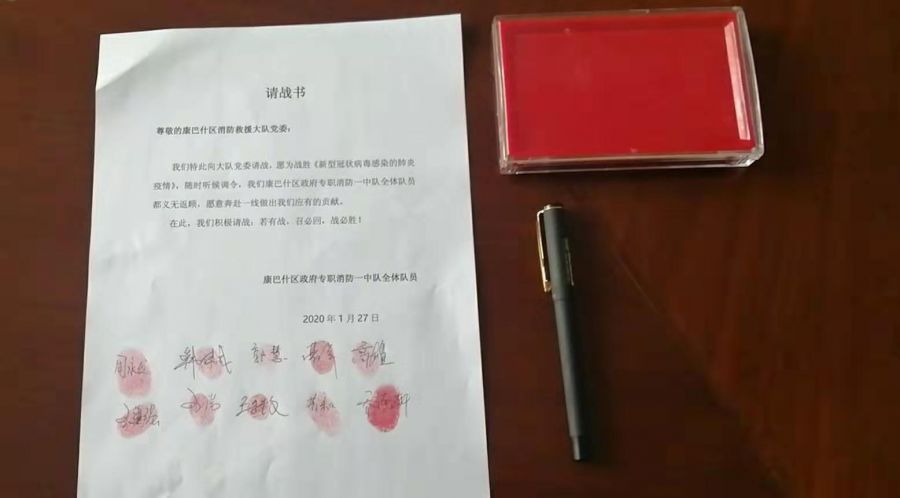 请战书
尊敬的康巴什区消防救援大队党委：
我们特此向大队党委请战，愿为战胜《新型冠状病毒感染的肺炎
疫情》，随时听候调令，我们康巴什区政府专职消防一中队全体队员
都义无返顾，愿意奔赴一线做出我们应有的贡献。
在此，我们积极请战：若有战，召必回，战必胜！
康巴什区政府专职消防一中队全体队员
2020 年 1 月 27 日